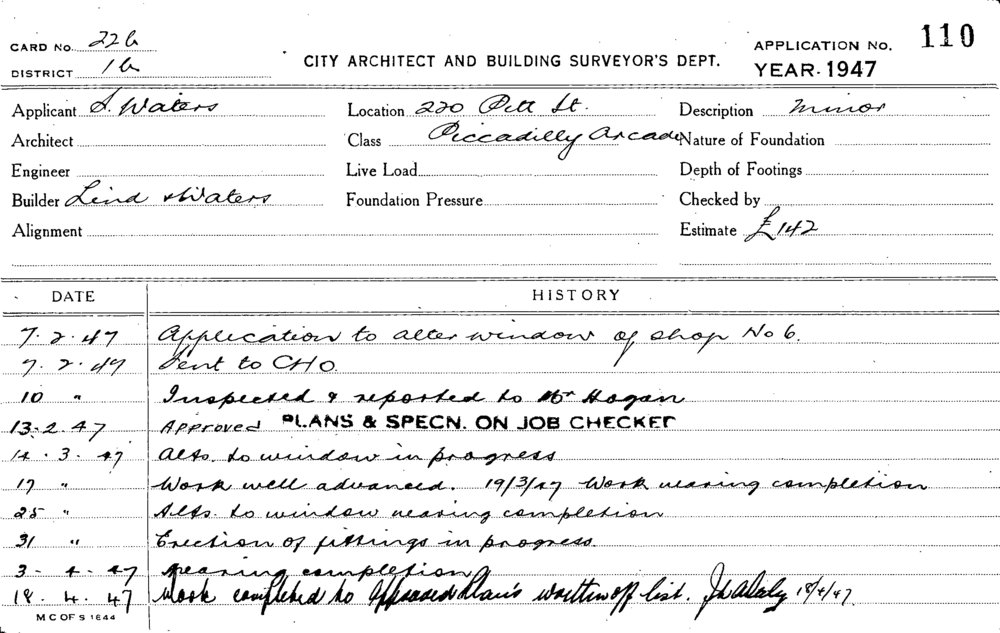 CARD No. 226
DISTRICT 16
CITY ARCHITECT AND BUILDING SURVEYOR'S DEPT.
APPLICATION No. 110
YEAR. 1947
Applicant S. Waters Location 220 Pitt St. Description Minor
Architect Class Piccadilly Arcade Nature of Foundation
Engineer Live Load Depth of Footings
Builder Lind & Waters Foundation Pressure Checked by
Alignment Estimate £142
DATE HISTORY
7.2.47 Application to alter window of shop No 6.
7.2.47 Sent to CHO.
10 " Inspected & reported to Mr Hogan
13.2.47 Approved PLANS & SPECN. ON JOB CHECKED
14.3.47 Alts. to window in progress
17 " Work well advanced. 19/3/47 Work nearing completion
25 " Alts. to window nearing completion
31 " Erection of fittings in progress.
3.4.47 Nearing completion
18.4.47 Work completed to Approved Plans written off list. 18/4/47.
M C OF S 1844